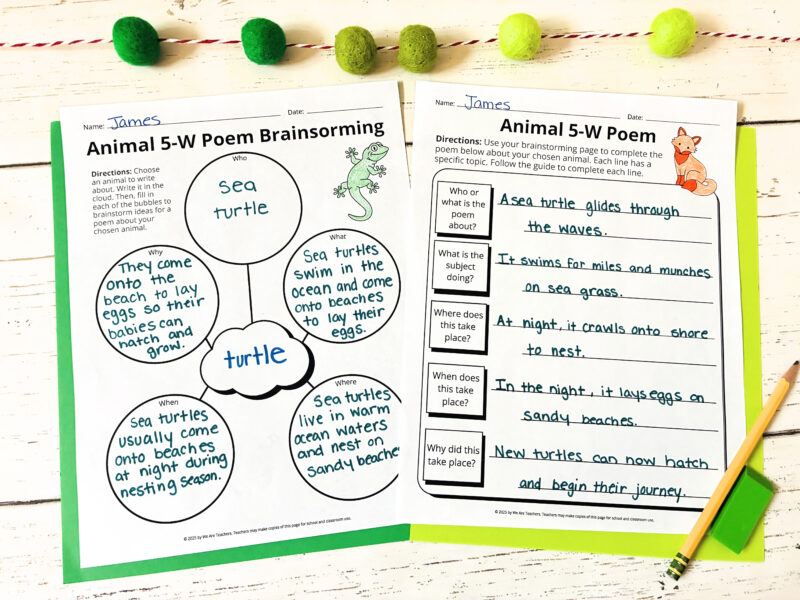 Name: James Date:
Animal 5-W Poem Brainsorming
Directions: Choose
an animal to write
about. Write it in the
cloud. Then, fill in
each of the bubbles to
brainstorm ideas for a
poem about your
chosen animal.
Who
Sea
turtle
Why
They come
onto the
beach to lay
eggs so their
babies can
hatch and
grow.
What
Sea turtles
swim in the
ocean and come
onto beaches
to lay their
eggs.
turtle
When
Sea turtles
usually come
onto beaches
at night during
nesting season.
Where
Sea turtles
live in warm
ocean waters
and nest on
sandy beache
© 2025 by We Are Teachers. Teachers may make copies of this page for school and classroom use.
Name: James Date:
Animal 5-W Poem
Directions: Use your brainstorming page to complete the
poem below about your chosen animal. Each line has a
specific topic. Follow the guide to complete each line.
Who or
what is the
poem
about?
A sea turtle glides through
the waves.
What is the
subject
doing?
It swims for miles and munches
on sea grass.
Where does
this take
place?
At night, it crawls onto shore
to nest.
When does
this take
place?
In the night, it lays eggs on
sandy beaches.
Why did this
take place?
New turtles can now hatch
and begin their journey.
© 2025 by We Are Teachers. Teachers may make copies of this page for school and classroom use.